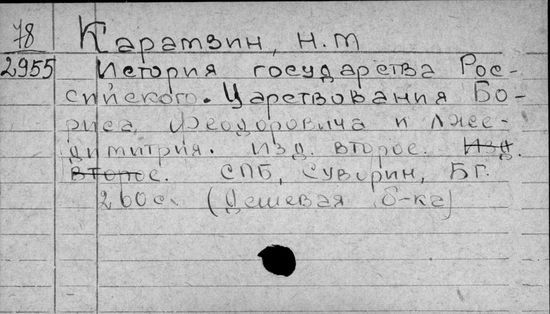 78 Карамзин, Н.М
2955 История государства Рос-
сийского. Царствования Бо-
риса Феодоровича и Лже-
димитрия. Изд. второе. Изд.
второе. СПБ, Суворин, Б.г.
260 с. (Дешевая б-ка)